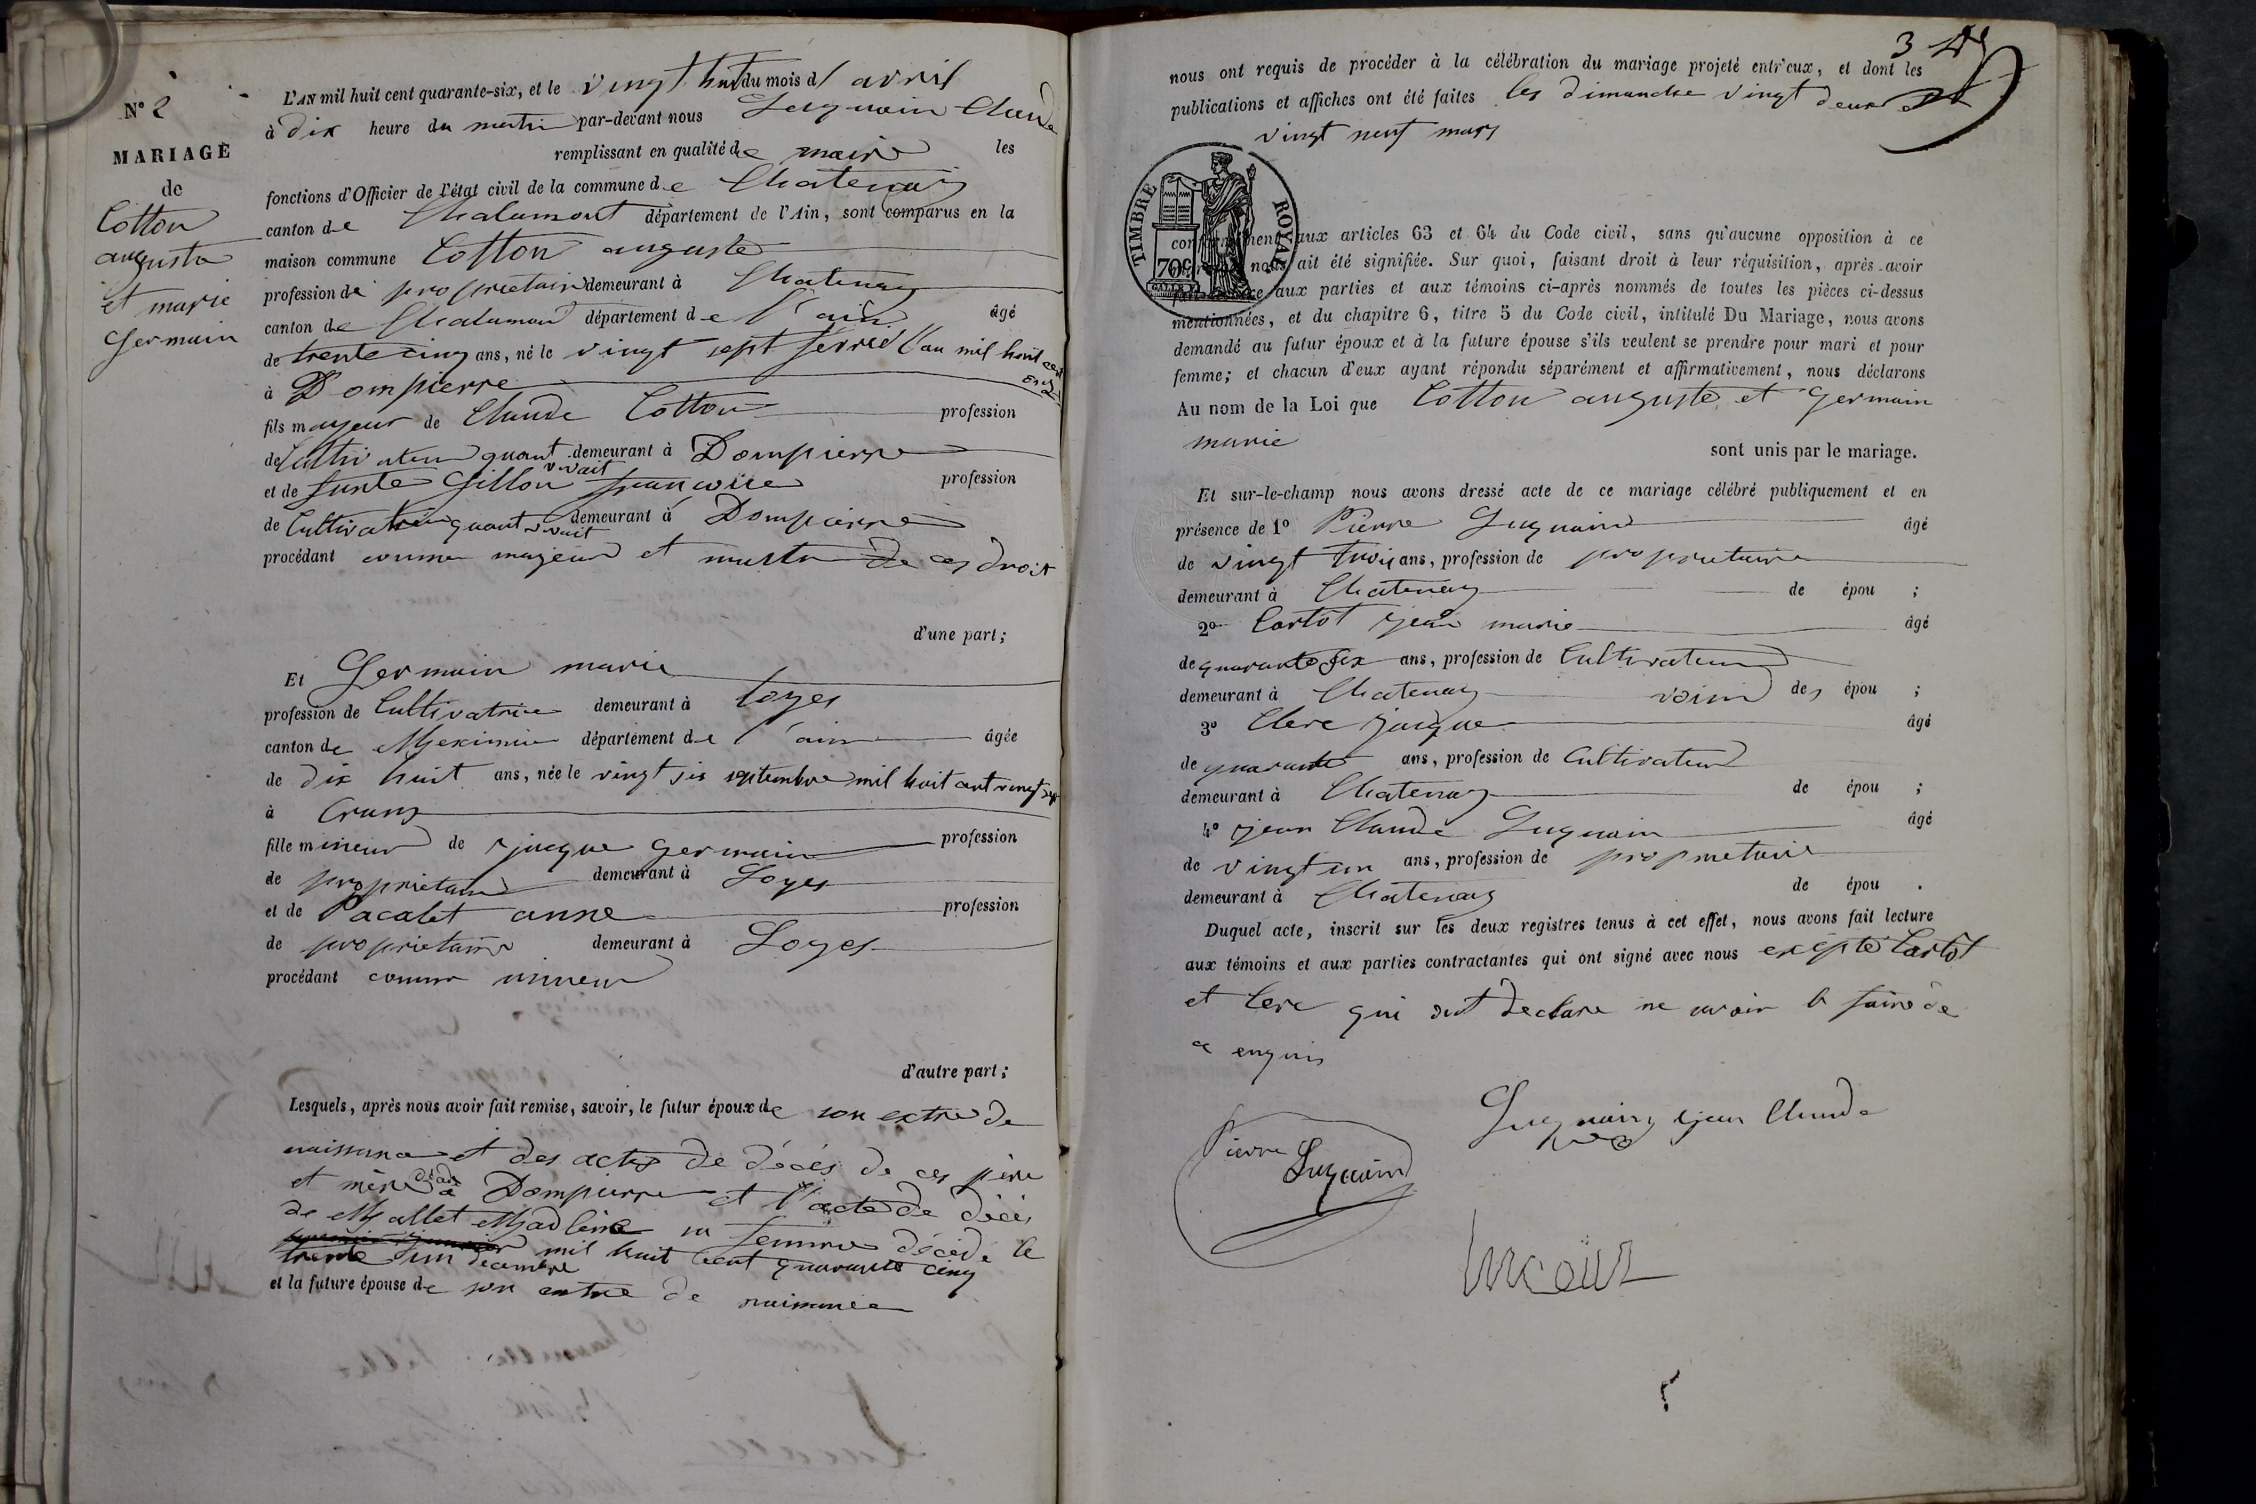 N.º 2
MARIAGE
de
Cotton
auguste
et marie
Germain
L'AN mil huit cent quarante-six, et le vingt huit du mois d' avril
à dix heure du matin par-devant nous Luquain Claude
remplissant en qualité de maire les
fonctions d'Officier de l'état civil de la commune de Chatenay
canton de Chalamont département de l'Ain, sont comparus en la
maison commune Cotton auguste
profession de proprietaire demeurant à Chatenay
canton de Chalamont département de l'ain âgé
de trente cinq ans, né le vingt sept fevrié l'an mil huit cent
onze
à Dompierre
fils mayeur de Claude Cotton profession
de Cultivateur quant vivait demeurant à Dompierre
et de funte Gillon françoise profession
de Cultivatrice quant vivait demeurant à Dompierre
procédant comme majeur et maitre de ces droit
d'une part;
Et Germain marie
profession de Cultivatrice demeurant à Loyes
canton de Meximieu département de l'ain âgée
de dix huit ans, née le vingt six septembre mil huit cent vingt sept
à Crans
fille mineur de jacque Germain profession
de proprietaire demeurant à Loyes
et de Pacalet anne profession
de proprietaire demeurant à Loyes
procédant comme mineur
d'autre part;
Lesquels, après nous avoir fait remise, savoir, le futur époux de son extrè de
naissance et des actes de décés de ces père
et mère à Dompierre et l'acte de décés
de Mallet Madleine sa femme décédé le
trente un decembre mil huit cent quarante cinq
et la future épouse de son extrè de naissance
3
nous ont requis de procéder à la célébration du mariage projeté entr'eux, et dont les
publications et affiches ont été faites les dimanche vingt deux et
vingt neuf mars
TIMBRE ROYAL
70c
conformément aux articles 63 et 64 du Code civil, sans qu'aucune opposition à ce
nous ait été signifiée. Sur quoi, faisant droit à leur réquisition, après avoir
fait lecture aux parties et aux témoins ci-après nommés de toutes les pièces ci-dessus
mentionnées, et du chapitre 6, titre 5 du Code civil, intitulé Du Mariage, nous avons
demandé au futur époux et à la future épouse s'ils veulent se prendre pour mari et pour
femme; et chacun d'eux ayant répondu séparément et affirmativement, nous déclarons
Au nom de la Loi que Cotton auguste et Germain
marie
sont unis par le mariage.
Et sur-le-champ nous avons dressé acte de ce mariage célébré publiquement et en
présence de 1º Pierre Luquain âgé
de vingt trois ans, profession de proprietaire
demeurant à Chatenay de épou ;
2º Cartôt jean marie âgé
de quarante six ans, profession de Cultivateur
demeurant à Chatenay voisin des épou ;
3º Clerc jacque âgé
de quarante ans, profession de Cultivateur
demeurant à Chatenay de épou ;
4º jean Claude Luquain âgé
de vingt un ans, profession de proprietaire
demeurant à Chatenay de épou .
Duquel acte, inscrit sur les deux registres tenus à cet effet, nous avons fait lecture
aux témoins et aux parties contractantes qui ont signé avec nous excépté Cartôt
et Clerc qui ont declare ne savoir le faire de
ce enquis
Luquain jean Claude
Pierre
Luquain